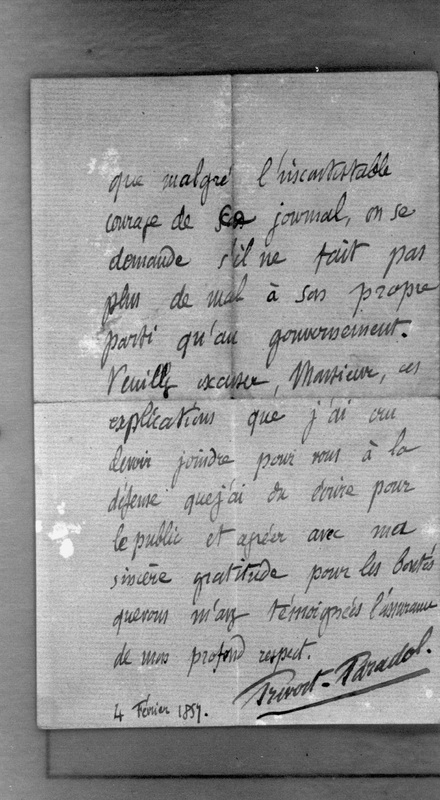 que malgré l'incontestable
courage de ce journal, on se
demande s'il ne fait pas
plus de mal à son propre
parti qu'au gouvernement.
Veuillez excuser, Monsieur, ces
explications que j'ai cru
devoir joindre pour vous à la
défense que j'ai du écrire pour
le public et agréer avec ma
sincère gratitude pour les bontés
que vous m'avez témoignées l'assurance
de mon profond respect.
Prévost-Paradol.
4 Février 1857.